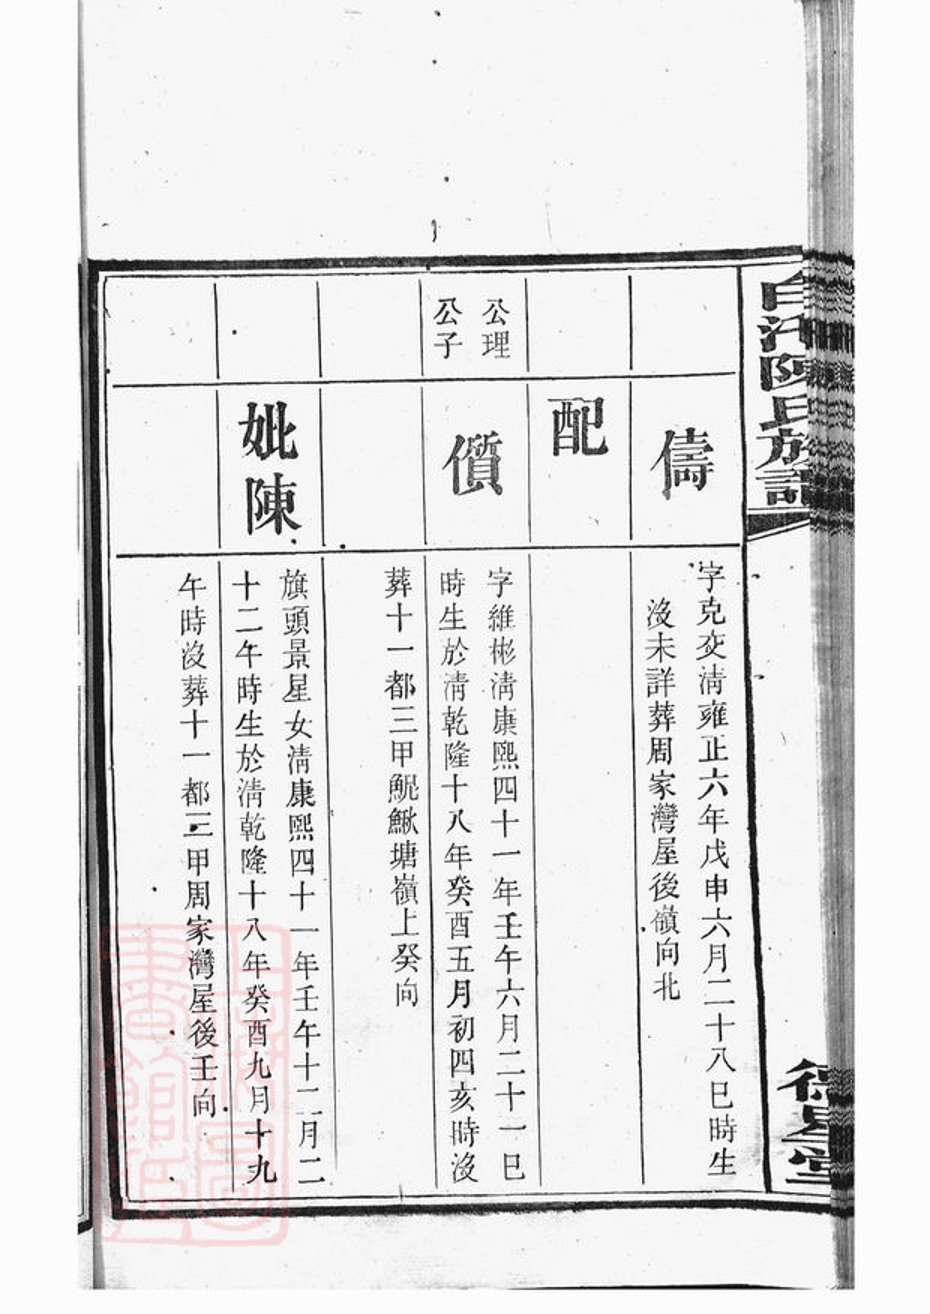 白沙陳氏族譜
德星堂
儔
字克交清雍正六年戊申六月二十八巳時生
沒未詳葬周家灣屋後嶺向北
配
公理
公子
儨
字維彬清康熙四十一年壬午六月二十一巳
時生於清乾隆十八年癸酉五月初四亥時沒
葬十一都三甲鯢鰍塘嶺上癸向
妣陳
旗頭景星女清康熙四十一年壬午十二月二
十二午時生於清乾隆十八年癸酉九月十九
午時沒葬十一都三甲周家灣屋後壬向